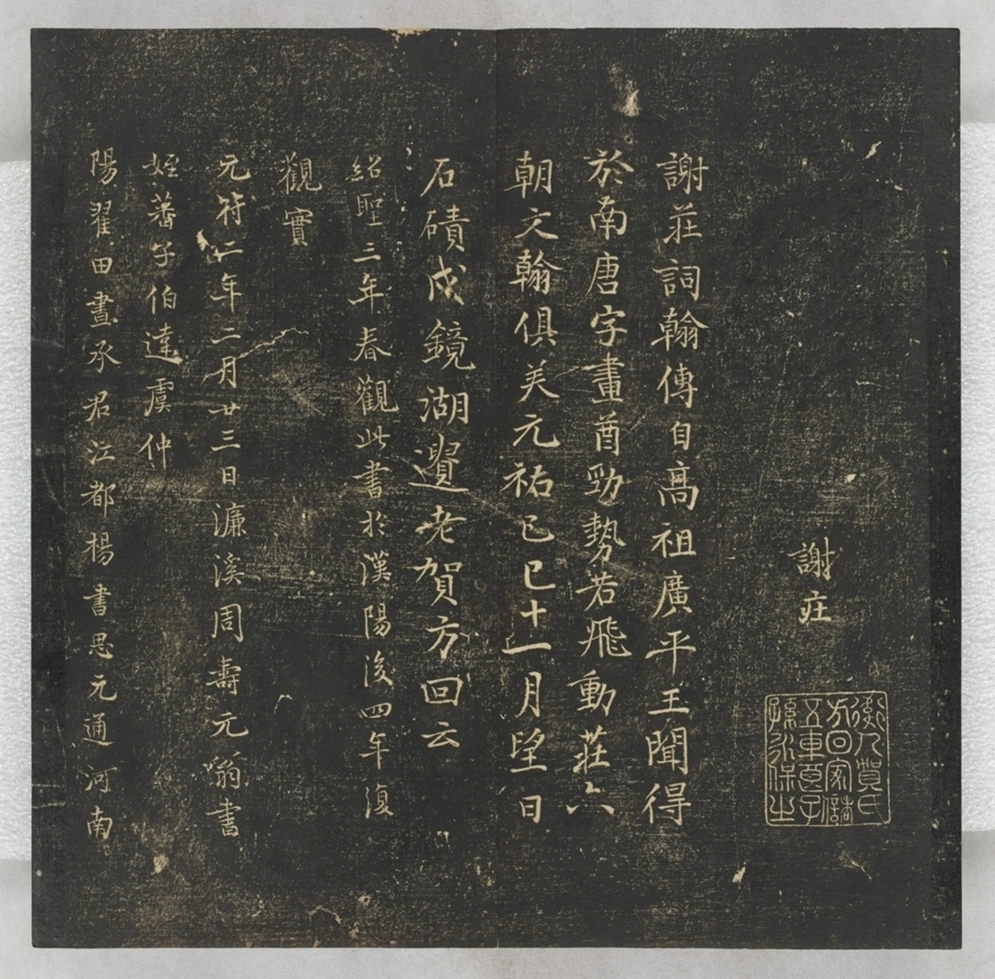 謝庄
越人賀氏
方回家
五車遺子
孫永保之
謝莊詞翰傳自高祖廣平王聞得
於南唐字畫酋勁勢若飛動莊六
朝文翰俱美元祐己巳十一月望日
石磧戍鏡湖遺老賀方回云
紹聖三年春觀此書於漢陽後四年復
觀實
元符二年二月廿三日濂溪周壽元翁書
姪蕃子伯達虞仲
陽翟田晝承君江都楊書思元通河南